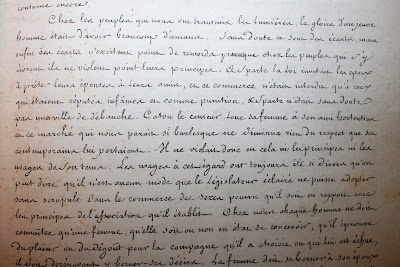 coutume encore.
Chez les peuples qui nous ont transmis les lumières, la gloire d'un jeune
homme était d'avoir beaucoup d'amans. Sans doute ce sont des écarts, mais
enfin ces écarts n'excitent point de remords chez les peuples qui s'y
livrent ils ne violent point leurs principes. A Sparte la loi invitait les époux
à prêter leurs épouses à leurs amis, en ce commerce n'était interdit qu'à ceux
qui étaient réputés infâmes et comme punition, et Sparte n'était sans doute
pas une ville de débauche. Caton le censeur loue sa femme à son ami hortensius
en ce marché qui nous parait si burlesque ne diminua rien du respect que ses
contemporains lui portaient. Il ne violait donc en cela ni les principes ni les
usages de son tems. Les usages à cet égard ont toujours été si divers qu'on
peut dire qu'il n'est aucun mode que le législateur éclairé ne puisse adopter
sans scrupule dans le commerce des sexes pourvu qu'il soit en rapport avec
les principes de l'association qu'il établit. Chez nous chaque homme ne doit
connaître qu'une femme, qu'elle soit ou non en état de concevoir, qu'il éprouve
du plaisir ou du dégoût pour la compagne qu'il a choisie ou qui lui est échue,
il doit y borner ses désirs. La femme doit se borner à son époux